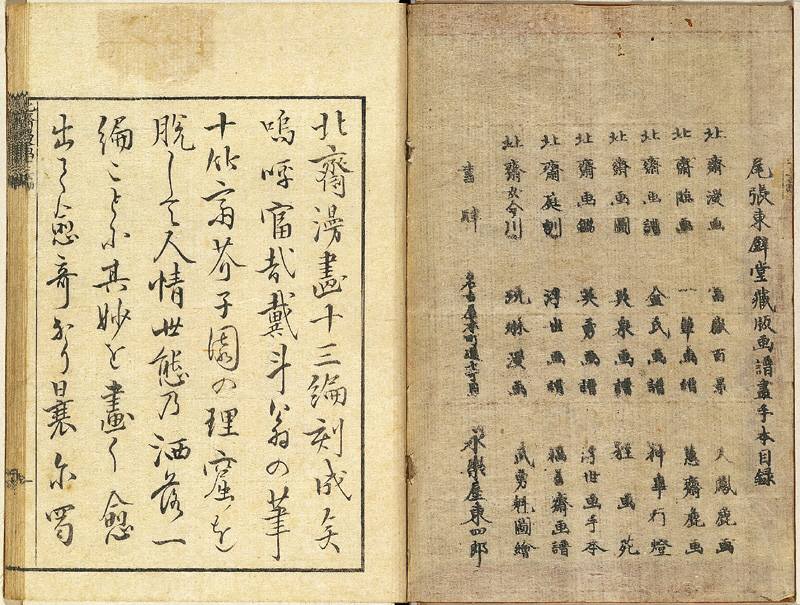 尾張東壁堂藏版画譜畫手本目録
北齋漫画 富嶽百景 文鳳麁画
北齋臨画 一筆画譜 蕙齋麁画
北齋画譜 金氏画譜 神事行燈
北齋画圖 英泉画譜 狂画苑
北齋画鑑 英勇画譜 浮世画手本
北齋庭訓 浮世画譜 福善齋画譜
北齋女今川 漫画 武勇魁圖繪
書肆 名古屋本町通七丁目 永樂屋東四郎
北齋漫畫十三編刻成矣
嗚呼富哉戴斗翁の筆
十竹齋芥子園の理窟を
脱して人情世態乃洒落一
編ことに其妙を畫く愈
出て愈奇なり曩尓蜀